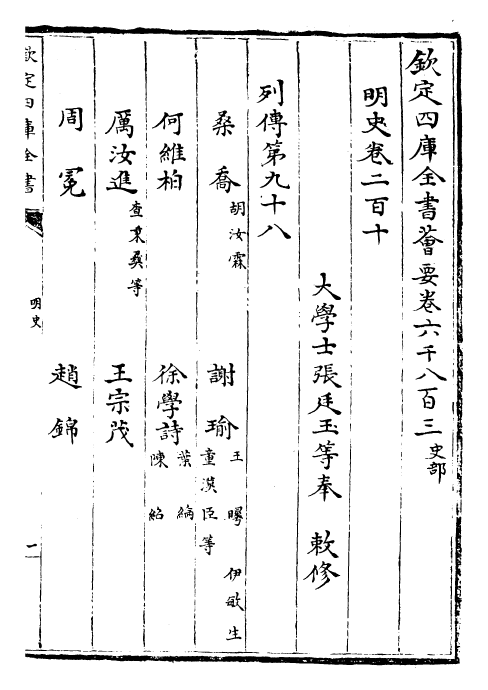 欽定四庫全書薈要卷六千八百三 史部
明史卷二百十
大學士張廷玉等奉 敕修
列傳第九十八
桑喬 胡汝霖 謝瑜 王曄 伊敏生 童漢臣等
何維柏 徐學詩 葉經 陳紹
厲汝進 查秉彝等 王宗茂
周冕 趙錦
欽定四庫全書
明史
一